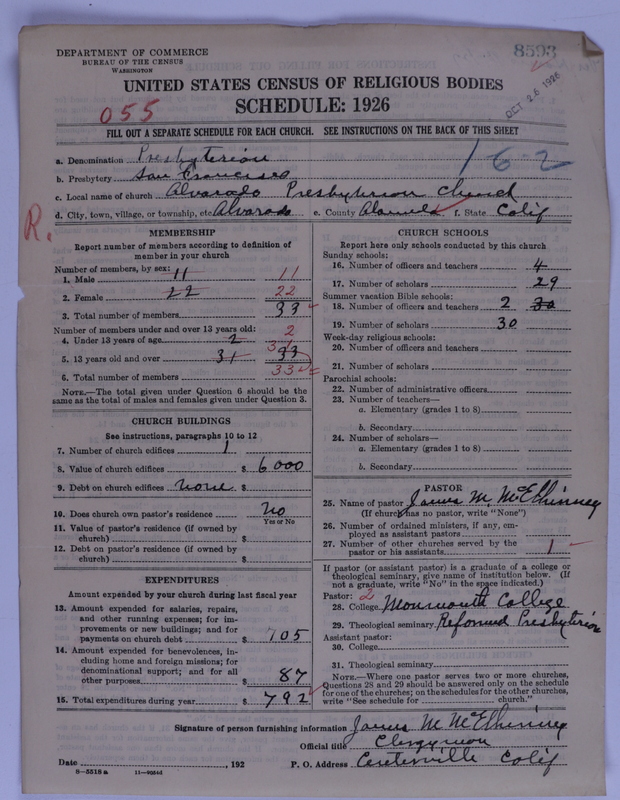 DEPARTMENT OF COMMERCE
BUREAU OF THE CENSUS
WASHINGTON
8593
OCT 26 1926
UNITED STATES CENSUS OF RELIGIOUS BODIES
SCHEDULE: 1926
055
FILL OUT A SEPARATE SCHEDULE FOR EACH CHURCH. SEE INSTRUCTIONS ON THE BACK OF THIS SHEET
a. Denomination Presbyterian
162
b. Presbytery San Francisco
c. Local name of church Alvarado Presbyterian Church
d. City, town, village, or township, etc. Alvarado e. County Alameda f. State Calif
R.
MEMBERSHIP
Report number of members according to definition of
member in your church
Number of members, by sex:
1. Male 11 11
2. Female 22 22
3. Total number of members 33
Number of members under and over 13 years old:
4. Under 13 years of age 2 2
5. 13 years old and over 31 33 31
6. Total number of members 33
NOTE.—The total given under Question 6 should be the
same as the total of males and females given under Question 3.
CHURCH BUILDINGS
See instructions, paragraphs 10 to 12
7. Number of church edifices 1
8. Value of church edifices $ 6000
9. Debt on church edifices none $
10. Does church own pastor's residence No
Yes or No
11. Value of pastor's residence (if owned by
church) $
12. Debt on pastor's residence (if owned by
church) $
EXPENDITURES
Amount expended by your church during last fiscal year
13. Amount expended for salaries, repairs,
and other running expenses; for im-
provements or new buildings; and for
payments on church debt $ 705
14. Amount expended for benevolences, in-
cluding home and foreign missions; for
denominational support; and for all
other purposes $ 87
15. Total expenditures during year $ 792
CHURCH SCHOOLS
Report here only schools conducted by this church
Sunday schools:
16. Number of officers and teachers 4
17. Number of scholars 29
Summer vacation Bible schools:
18. Number of officers and teachers 2 30
19. Number of scholars 30
Week-day religious schools:
20. Number of officers and teachers
21. Number of scholars
Parochial schools:
22. Number of administrative officers
23. Number of teachers—
a. Elementary (grades 1 to 8)
b. Secondary
24. Number of scholars—
a. Elementary (grades 1 to 8)
b. Secondary
PASTOR
25. Name of pastor James M. McElhinney
(If church has no pastor, write "None")
26. Number of ordained ministers, if any, em-
ployed as assistant pastors
27. Number of other churches served by the
pastor or his assistants 1
If pastor (or assistant pastor) is a graduate of a college or
theological seminary, give name of institution below. (If
not a graduate, write "No" in the space indicated.)
Pastor: 2
28. College Monmouth College
29. Theological seminary Reformed Presbyterian
Assistant pastor:
30. College
31. Theological seminary
NOTE.—Where one pastor serves two or more churches,
Questions 28 and 29 should be answered only on the schedule
for one of the churches; on the schedules for the other churches,
write "See schedule for church."
Signature of person furnishing information James M McElhinney
Official title Clergyman
Date , 192 P. O. Address Centerville Calif
8—5518 a 11—9034d